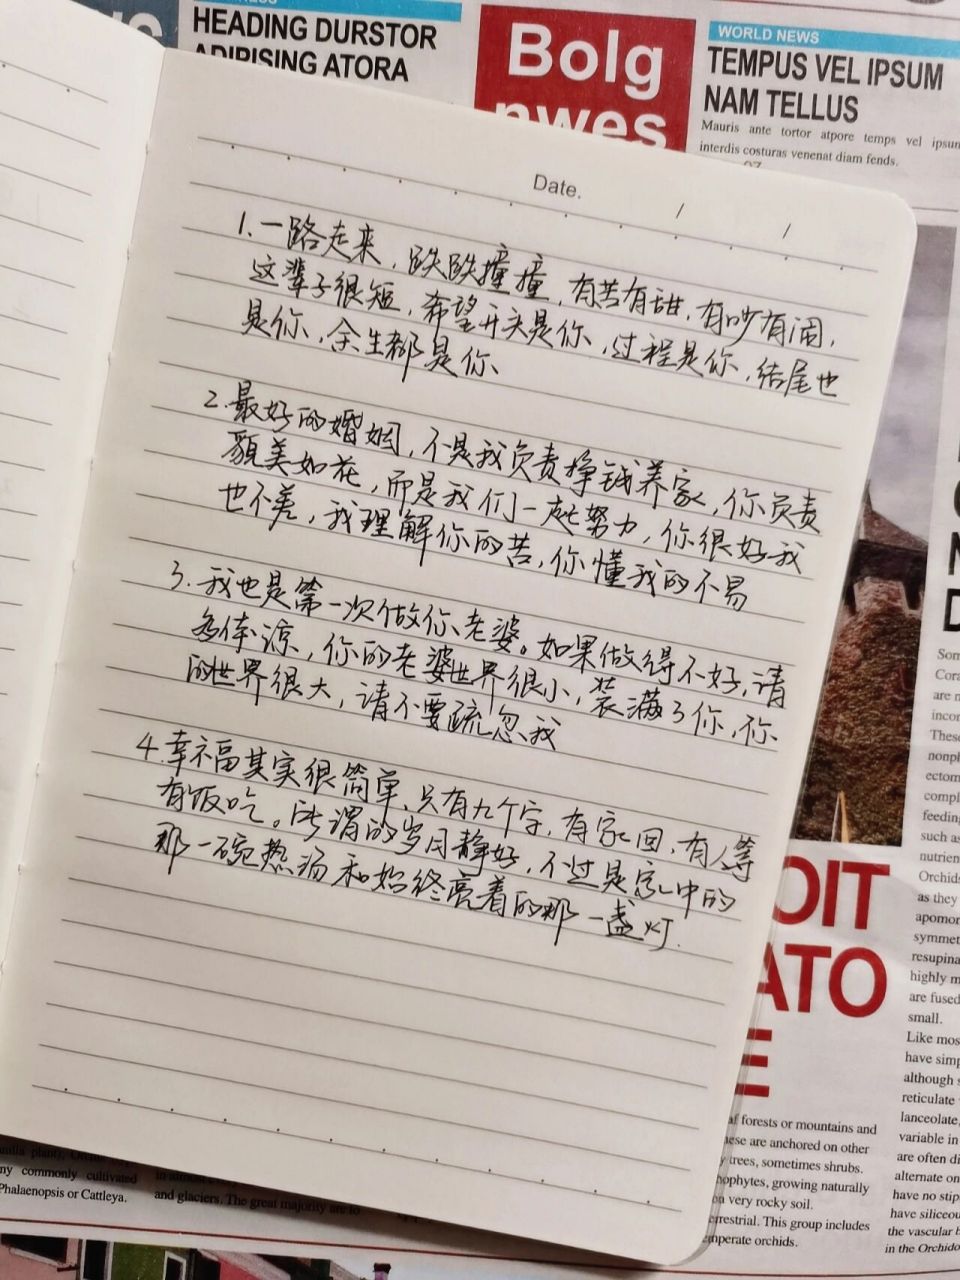 HEADING DURSTOR
ADIPISING ATORA
Bolg
nwes
WORLD NEWS
TEMPUS VEL IPSUM
NAM TELLUS
Mauris ante tortor atpore temps vel ipsum
interdis costuras venenat diam fends.
Date.
/ /
1.一路走来,跌跌撞撞,有苦有甜,有吵有闹,
这辈子很短,希望开头是你,过程是你,结尾也
是你,余生都是你
2.最好的婚姻,不是我负责挣钱养家,你负责
貌美如花,而是我们一起努力,你很好我
也不差,我理解你的苦,你懂我的不易
3.我也是第一次做你老婆。如果做得不好,请
多体谅,你的老婆世界很小,装满了你,你
的世界很大,请不要疏忽我
4.幸福其实很简单,只有九个字,有家回,有人等
有饭吃。所谓的岁月静好,不过是家中的
那一碗热汤和始终亮着的那一盏灯.
OIT
ATO
E
Som
Cora
are n
incor
These
nonpl
ectom
compl
feeding
such as
nutrien
Orchids
as they
apomor
symmet
resupina
highly m
are fused
small.
Like mos
have simp
although s
reticulate
lanceolate,
variable in
are often di
alternate on
have no stip
have siliceou
the vascular b
in the Orchido
af forests or mountains and
ese are anchored on other
trees, sometimes shrubs.
ophytes, growing naturally
n very rocky soil.
errestrial. This group includes
emperate orchids.
ny commonly cultivated
Phalaenopsis or Cattleya.
and glaciers. The great majority are to